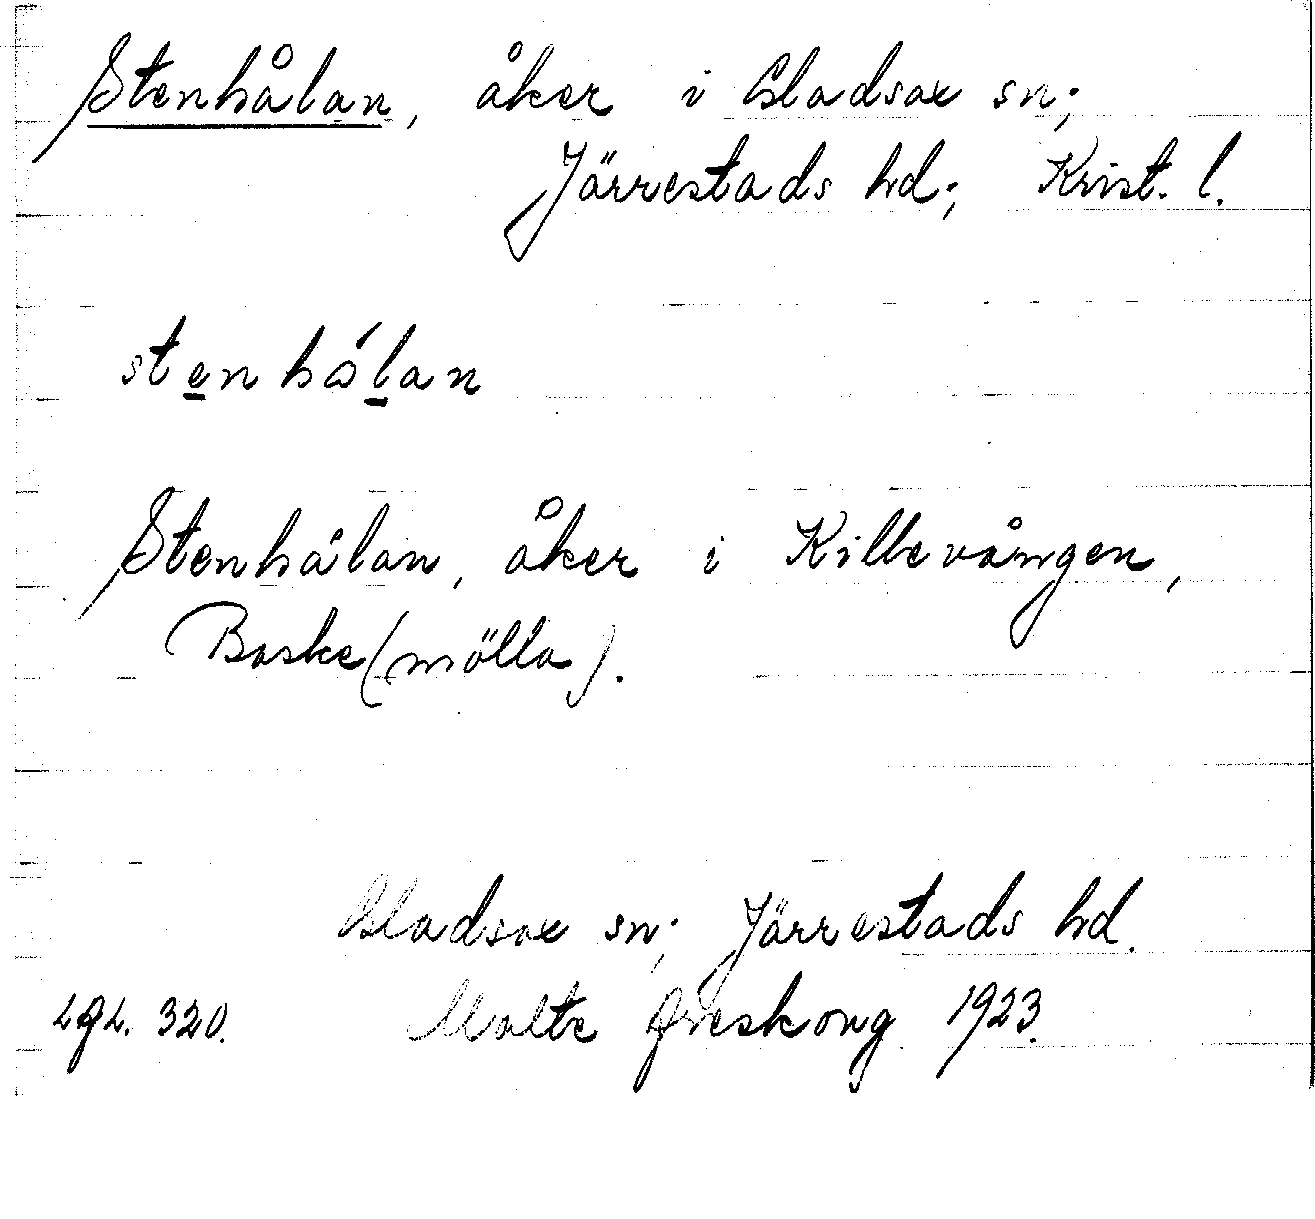 Stenhålan, åker i Gladsax sn;
Järrestads hd; Krist. l.
stenhålan
Stenhålan, åker i Killevången,
Baske(mölla).
Gladsax sn; Järrestads hd.
320. Malte 1923.